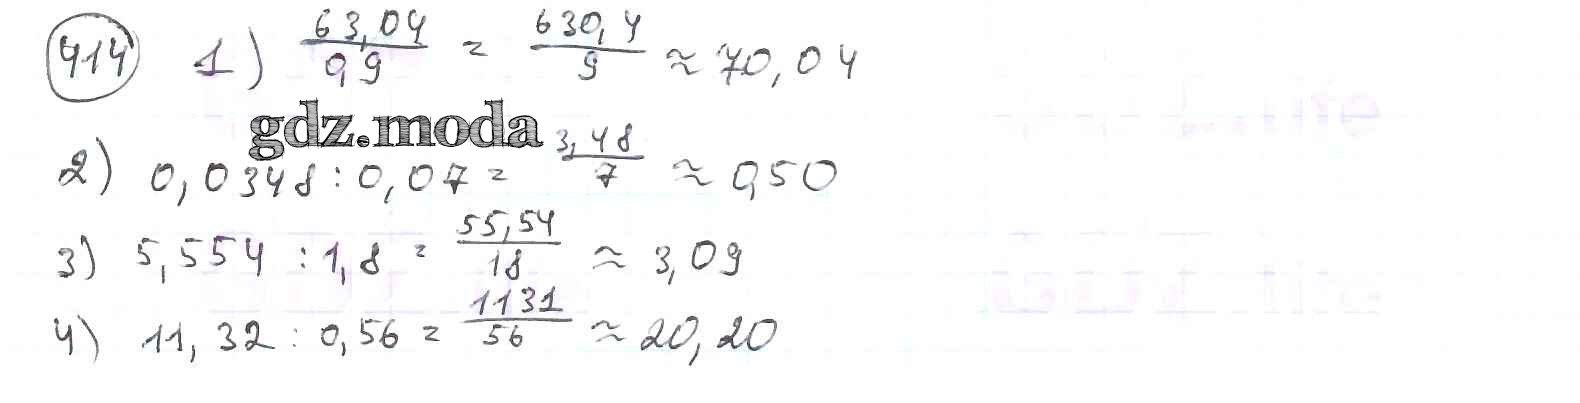 414 1) 63,04/0,9 = 630,4/9 ≈ 70,04
gdz.moda
2) 0,0348 : 0,07 = 3,48/7 ≈ 0,50
3) 5,554 : 1,8 = 55,54/18 ≈ 3,09
4) 11,32 : 0,56 = 1131/56 ≈ 20,20